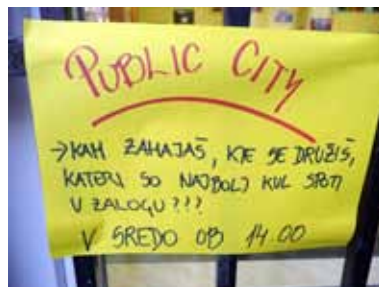 PUBLIC CITY
→KAM ZAHAJAŠ, KJE SE DRUŽIŠ,
KATERI SO NAJBOLJ KUL SPOTI
V ZALOGU???
V SREDO OB 14.00